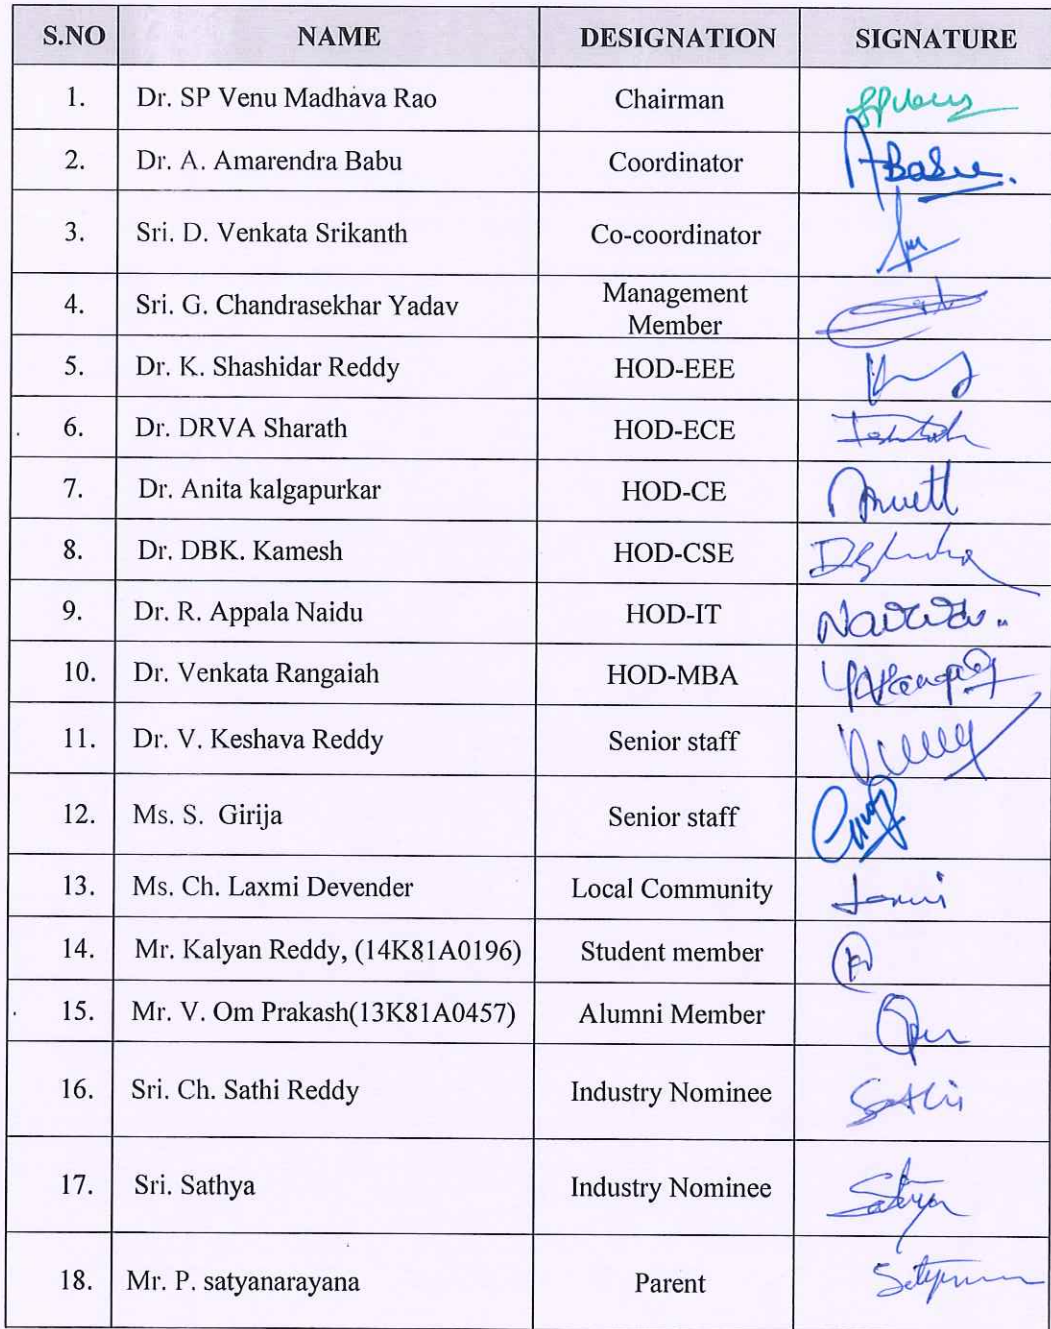 S.NO NAME DESIGNATION SIGNATURE
1. Dr. SP Venu Madhava Rao Chairman
2. Dr. A. Amarendra Babu Coordinator ABabu.
3. Sri. D. Venkata Srikanth Co-coordinator
4. Sri. G. Chandrasekhar Yadav Management
Member
5. Dr. K. Shashidar Reddy HOD-EEE
6. Dr. DRVA Sharath HOD-ECE
7. Dr. Anita kalgapurkar HOD-CE
8. Dr. DBK. Kamesh HOD-CSE
9. Dr. R. Appala Naidu HOD-IT
10. Dr. Venkata Rangaiah HOD-MBA
11. Dr. V. Keshava Reddy Senior staff
12. Ms. S. Girija Senior staff
13. Ms. Ch. Laxmi Devender Local Community
14. Mr. Kalyan Reddy, (14K81A0196) Student member
15. Mr. V. Om Prakash(13K81A0457) Alumni Member
16. Sri. Ch. Sathi Reddy Industry Nominee Sathi
17. Sri. Sathya Industry Nominee Sathya
18. Mr. P. satyanarayana Parent